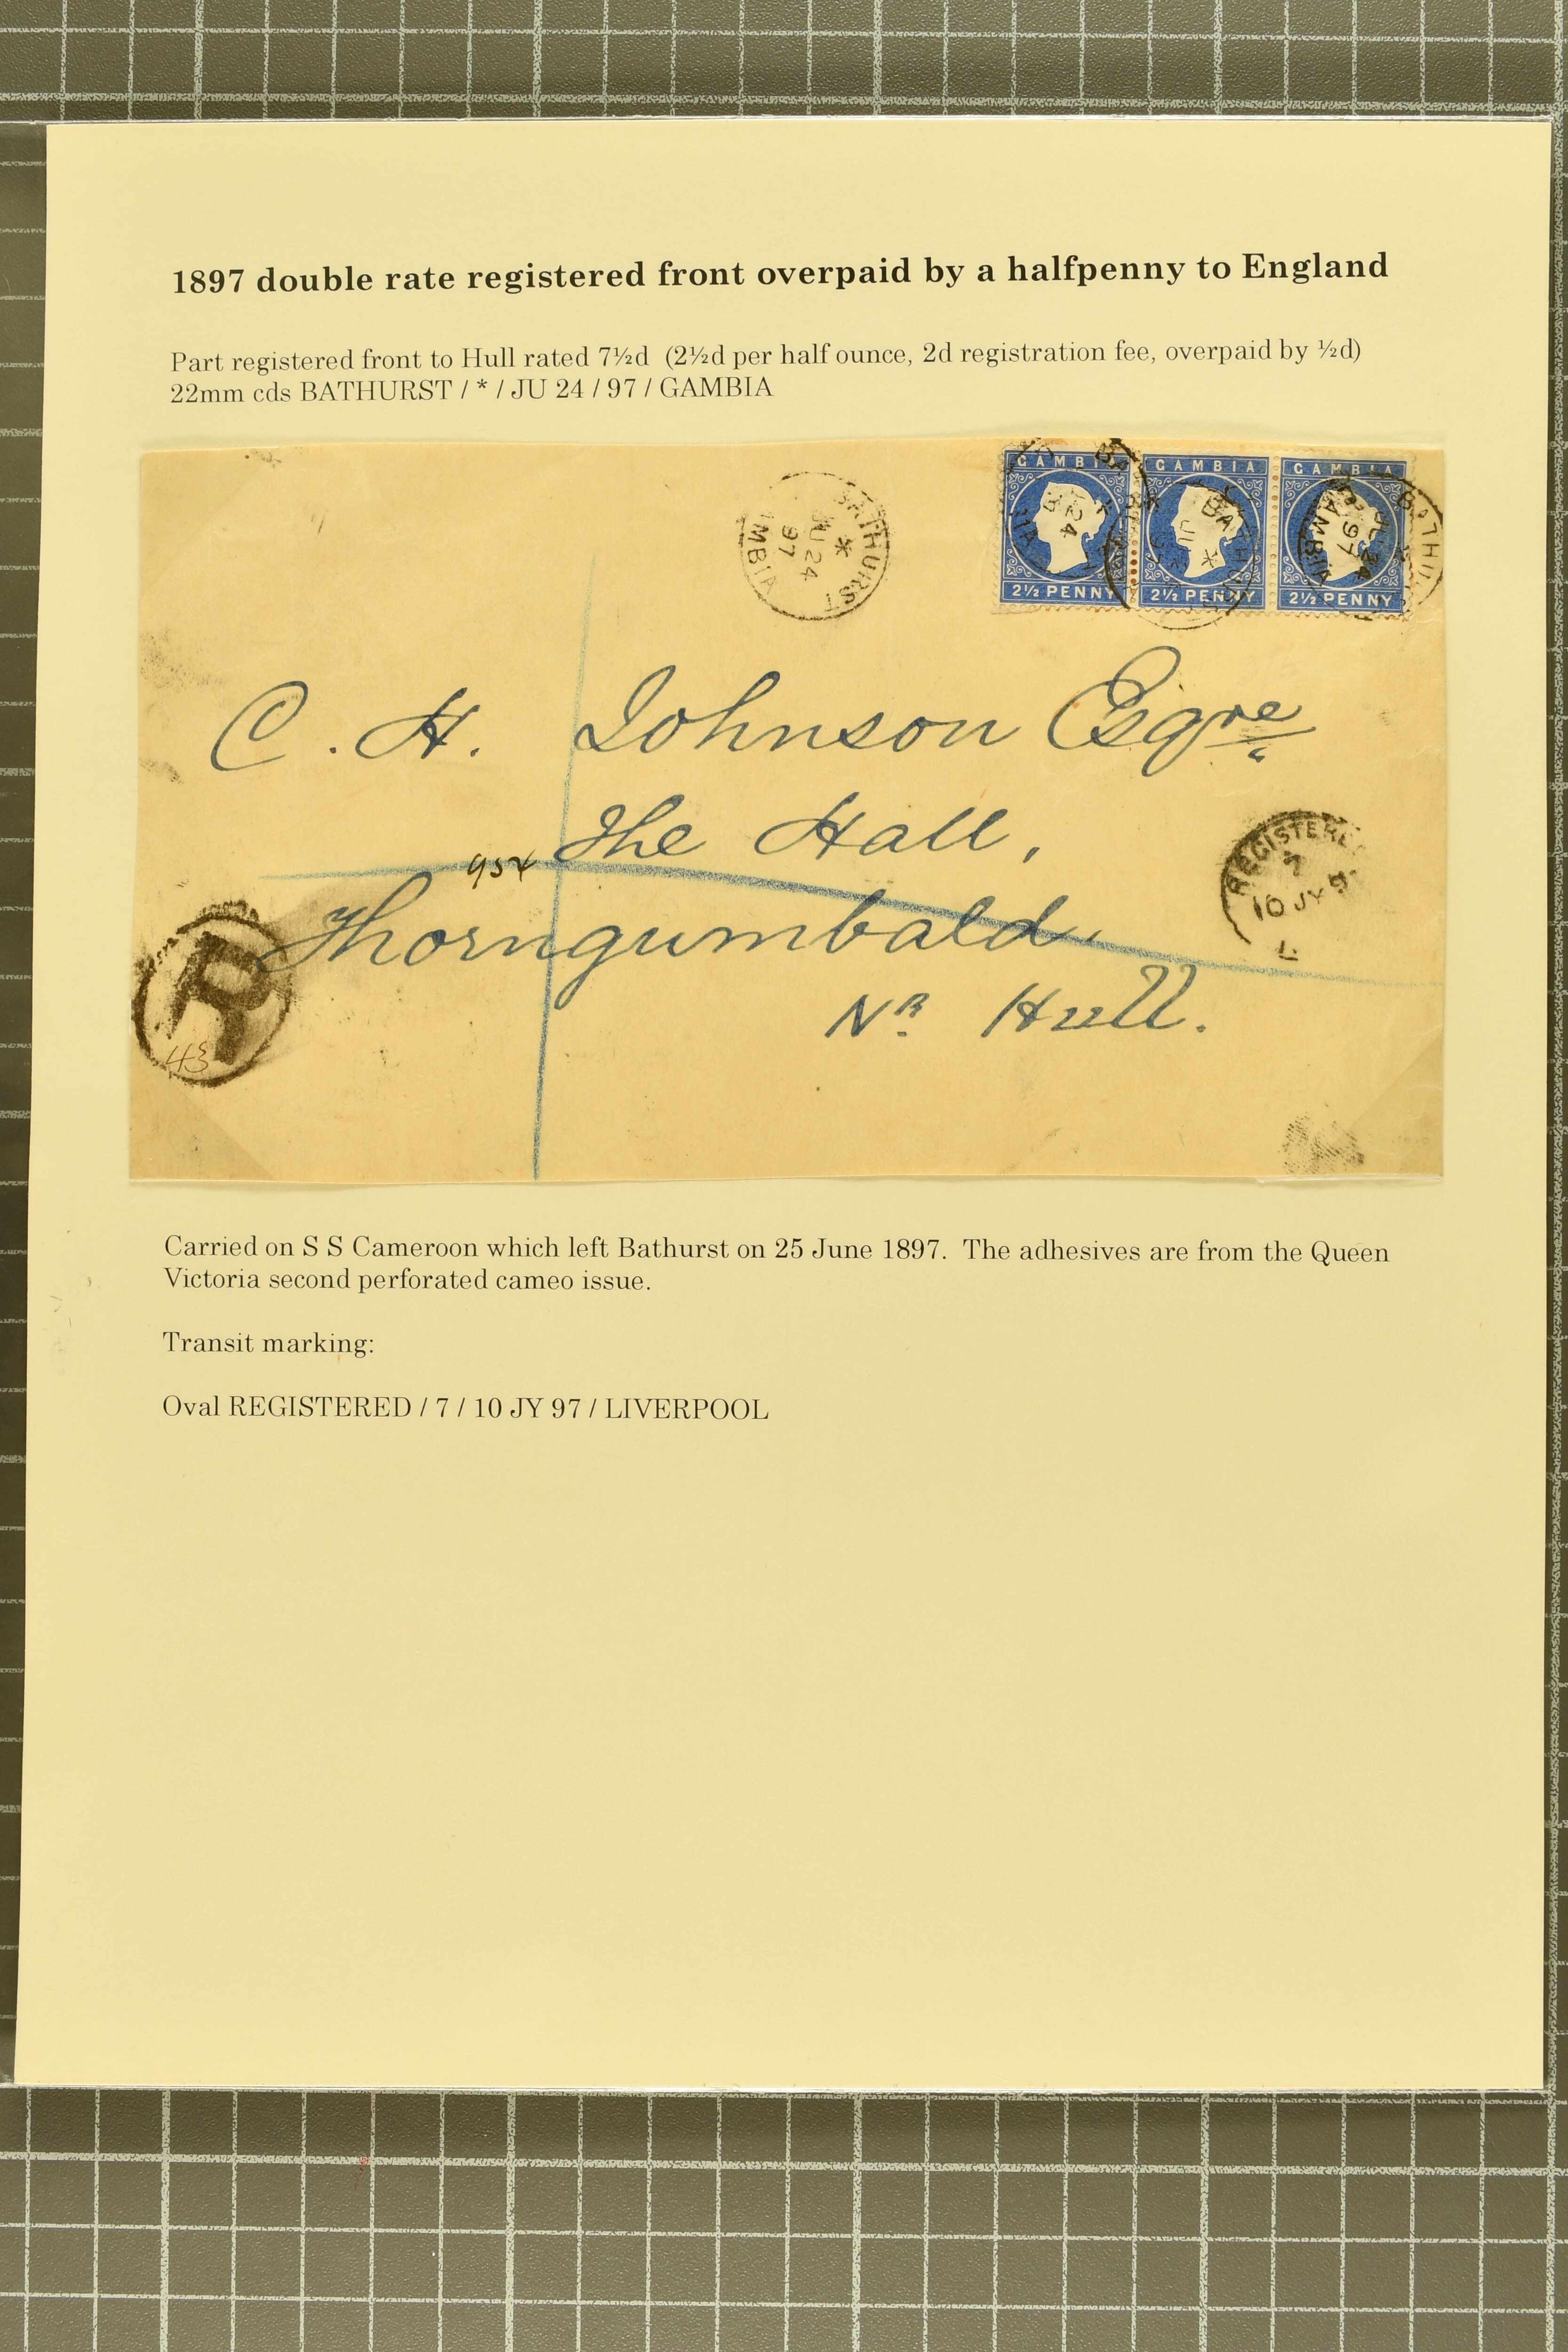 1897 double rate registered front overpaid by a halfpenny to England
Part registered front to Hull rated 7½d (2½d per half ounce, 2d registration fee, overpaid by ½d)
22mm cds BATHURST / * / JU 24 / 97 / GAMBIA
BATHURST
*
JU 24
97
MBIA
GAMBIA
2½ PENNY
24
GAMBIA
2½ PENNY
BATHURST
*
JU
GAMBIA
2½ PENNY
BATHU
JU 24
97
AMBIA
C. H. Johnson Esqre
The Hall,
Thorngumbald,
Nr Hull.
REGISTERE
7
10 JY 9
L
R
43
Carried on S S Cameroon which left Bathurst on 25 June 1897. The adhesives are from the Queen
Victoria second perforated cameo issue.
Transit marking:
Oval REGISTERED / 7 / 10 JY 97 / LIVERPOOL